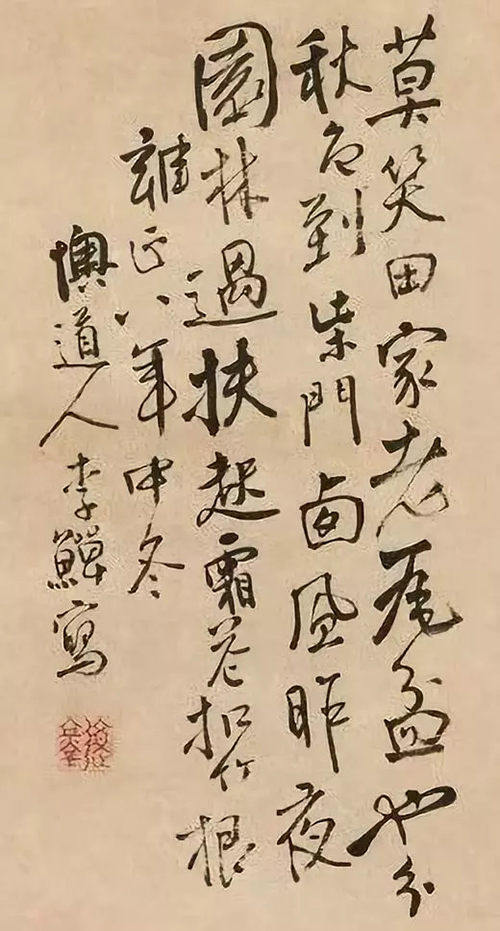 莫笑田家老瓦盆也分
秋色到柴門西風昨夜
園林過扶起霜花扣竹根
雍正八年中冬
懊道人李鱓寫